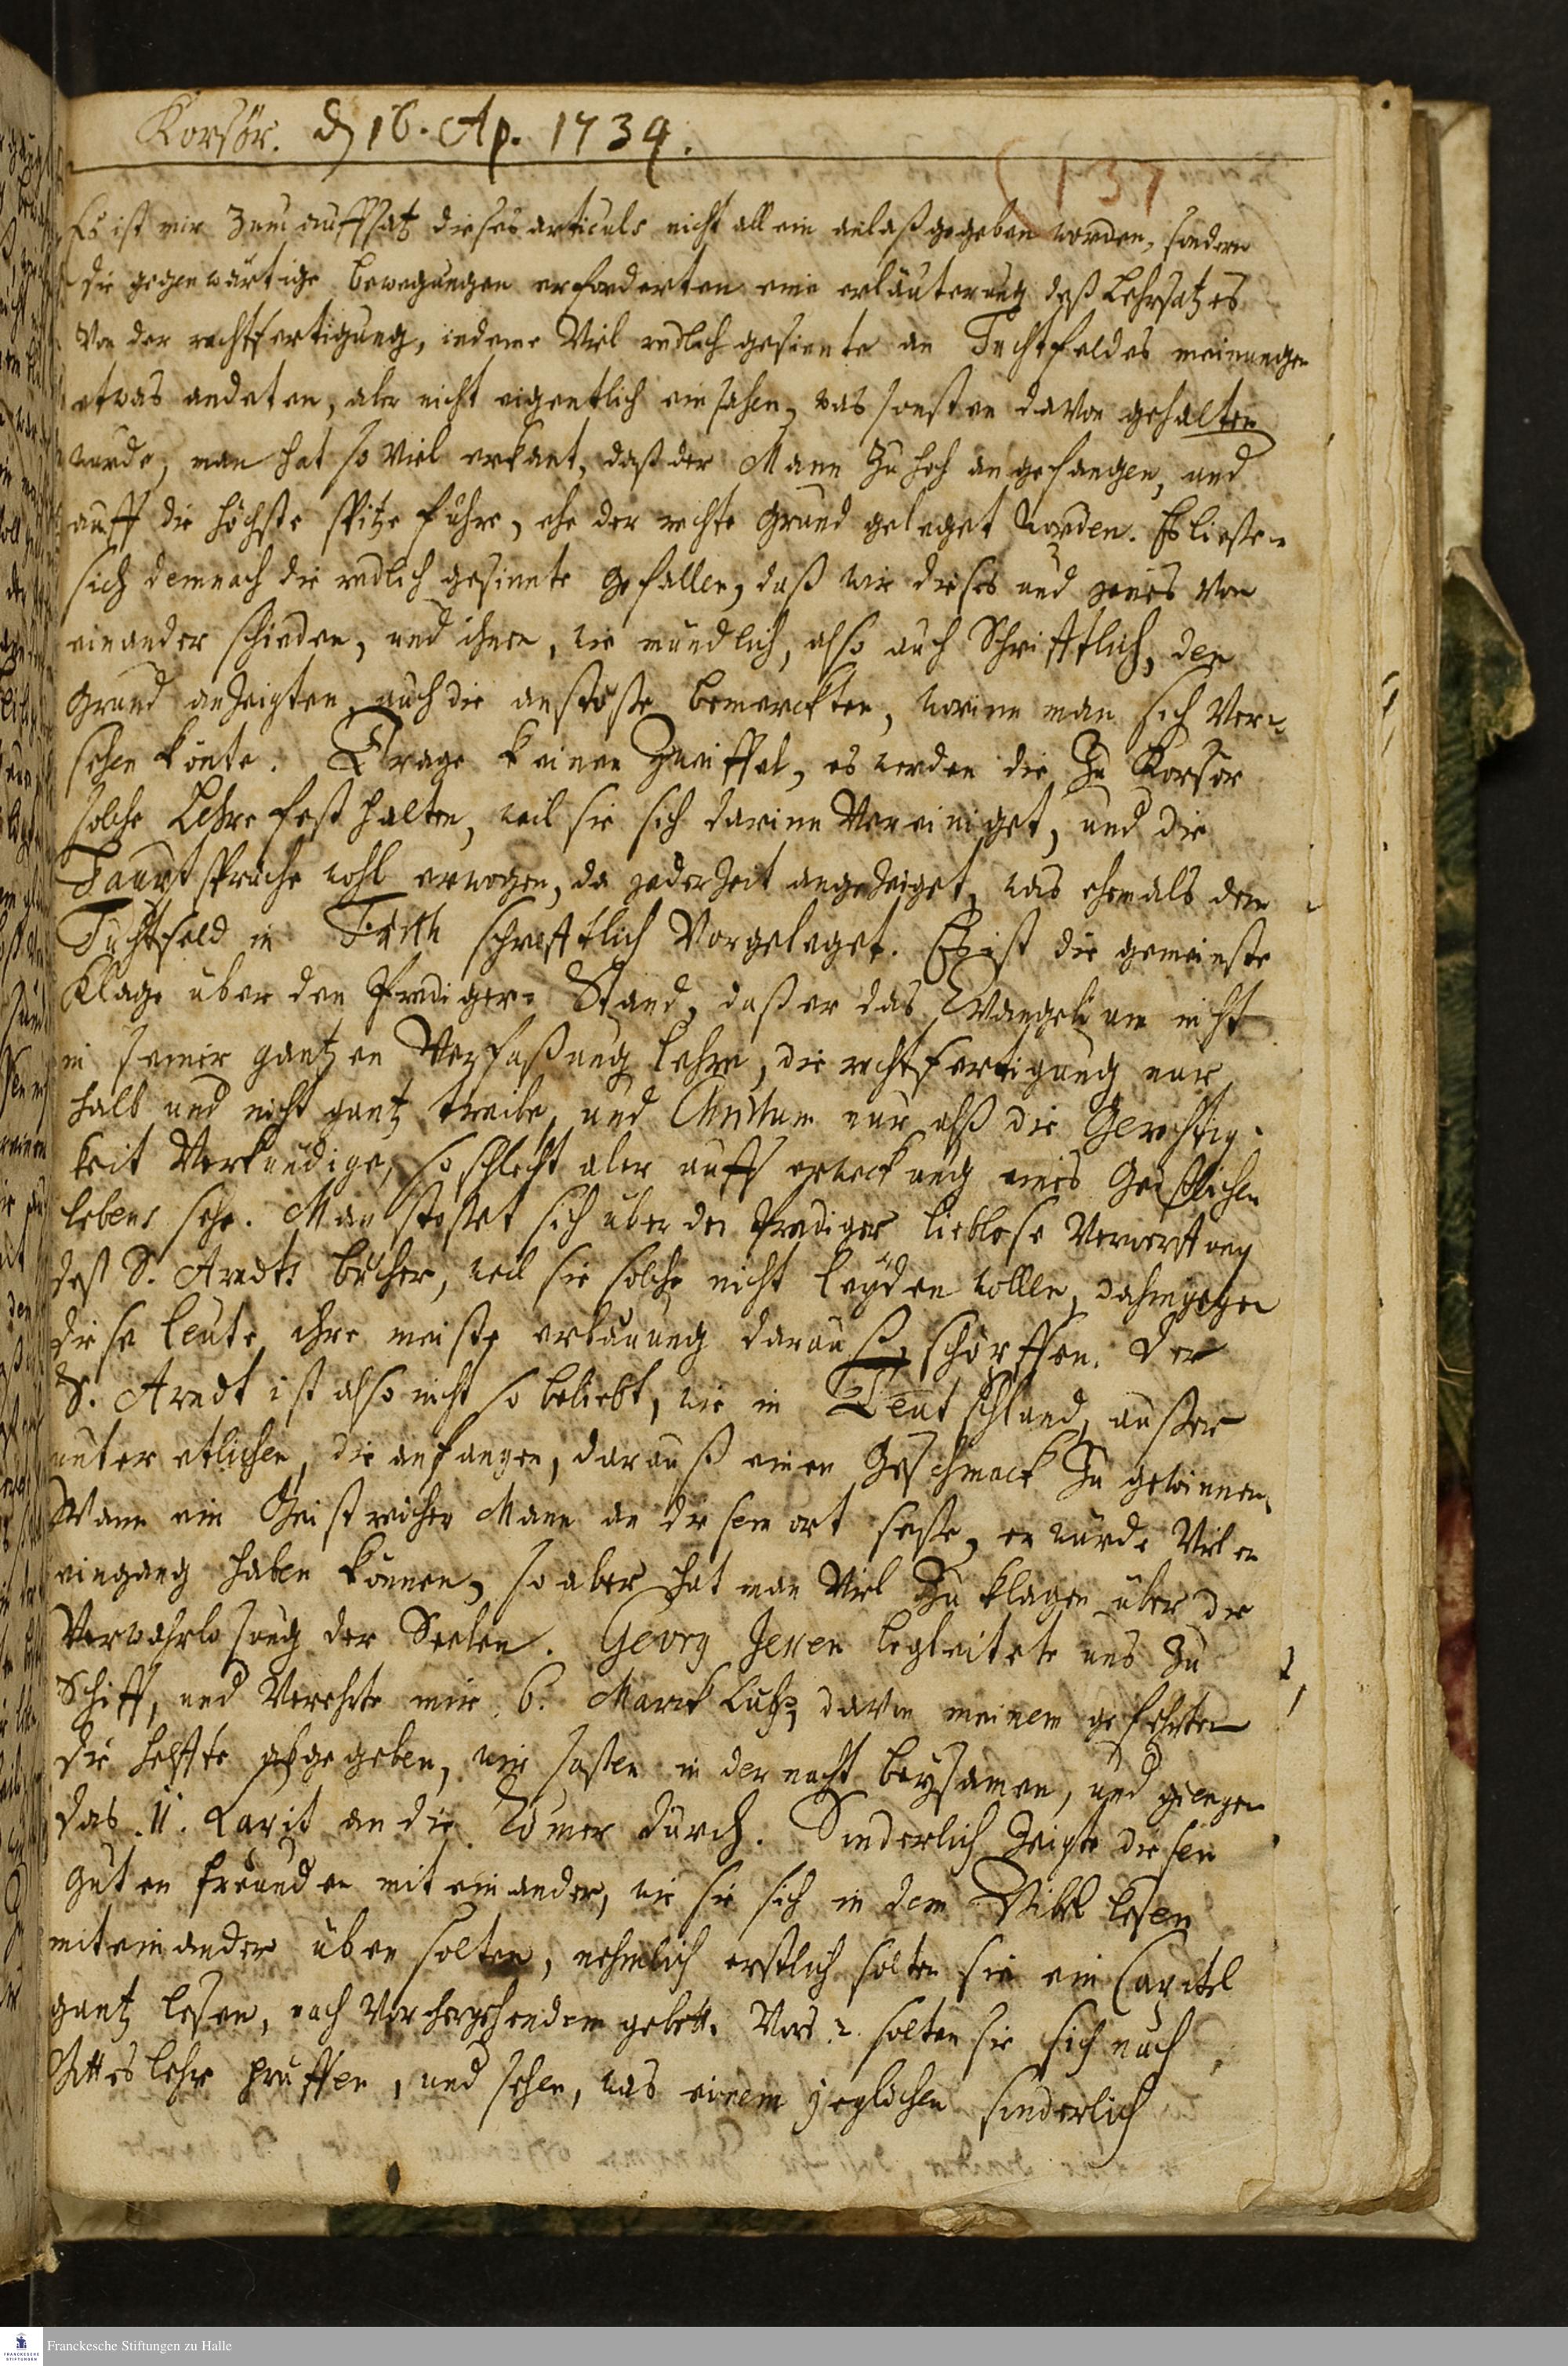 Korsör. d 16. Ap. 1734.
(137
Es ist mir zum auffsatz dieses articuls nicht allein anlaß gegeben worden, sondern
die gegenwärtige bewegungen erforderten eine erläuterung deß Lehrsatzes
Von der rechtfertigung, indeme Viel redlich gesinnte an Tuchtfeldes meinungen
etwas andeten, aber nicht eigentlich einsahen, was sonsten davon gehalten
wurde, man hat so viel erkant, daß der Mann zu hoch angefangen, und
auff die höchste spitze führe, ehe der rechte grund geleget worden. Es ließen
sich demnach die redlich gesinnte gefallen, daß wir dieses und jenes von
einander schieden, und ihnen, wie mündlich, also auch Schrifftlich, den
grund anzeigten, auch die anstöße bemerckten, worinn man sich Ver-
sehen könte. Trage keinen Zweiffel, es werden die zu Korsör
solche Lehre fest halten, weil sie sich darinn Vereiniget, und die
Haupt sprüche wohl erwogen, da jederzeit angezeiget, was ehemals dem
Tuchtfeld in Fürth schrifftlich Vorgeleget. Es ist die gemeinste
Klage über den Prediger-Stand, daß er das Evangelium nicht
in seiner gantzen Verfaßung lehre, die rechtfertigung nur
halb und nicht gantz treibe, und Christum nur alß die Gerechtig-
keit Verkündige, so schlecht aber auffs erweckung eines Geistlichen
lebens sehe. Man stoßet sich über der Prediger lieblose Verwerffung
deß S. Arndts bücher, weil sie solche nicht leyden wollen, dahingegen
diese leute ihre meiste erbauung darauß schöpffen. Der
S. Arndt ist also nicht so beliebt, wie in Teutschland, außer
unter etlichen, die anfangen, darauß einen Geschmack zu gewinnen.
Wann ein Geistreicher Mann an diesem ort seße, er würde Vielen
eingang haben können, so aber hat man Viel zu klagen über die
Verwahrlosung der Seelen. Georg Jessen begleitete uns zu
Schiff, und Verehrte mir 6. Marck Lübs, davon meinem gefehrten
die helffte abgegeben, wir saßen in der nacht beysamen, und giengen
das 11. Capit an die Römer durch. Sonderlich zeigte diesen
guten freunden miteinander, wie sie sich in dem Bibel lesen
miteinander üben solten, nehmlich erstlich solten sie ein Capitel
gantz lesen, nach Vorhergehendem gebett. Vors 2. solten sie sich nach
Gottes lehre prüffen, und sehen, was einem jeglichen sonderlich
Franckesche Stiftungen zu Halle